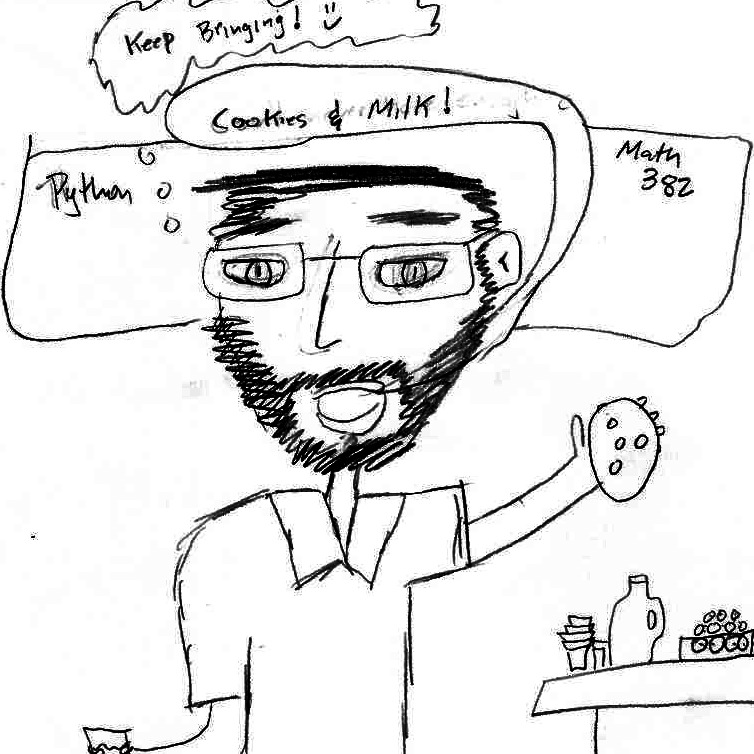 Keep Bringing! :)
Cookies & Milk!
Python
Math
382